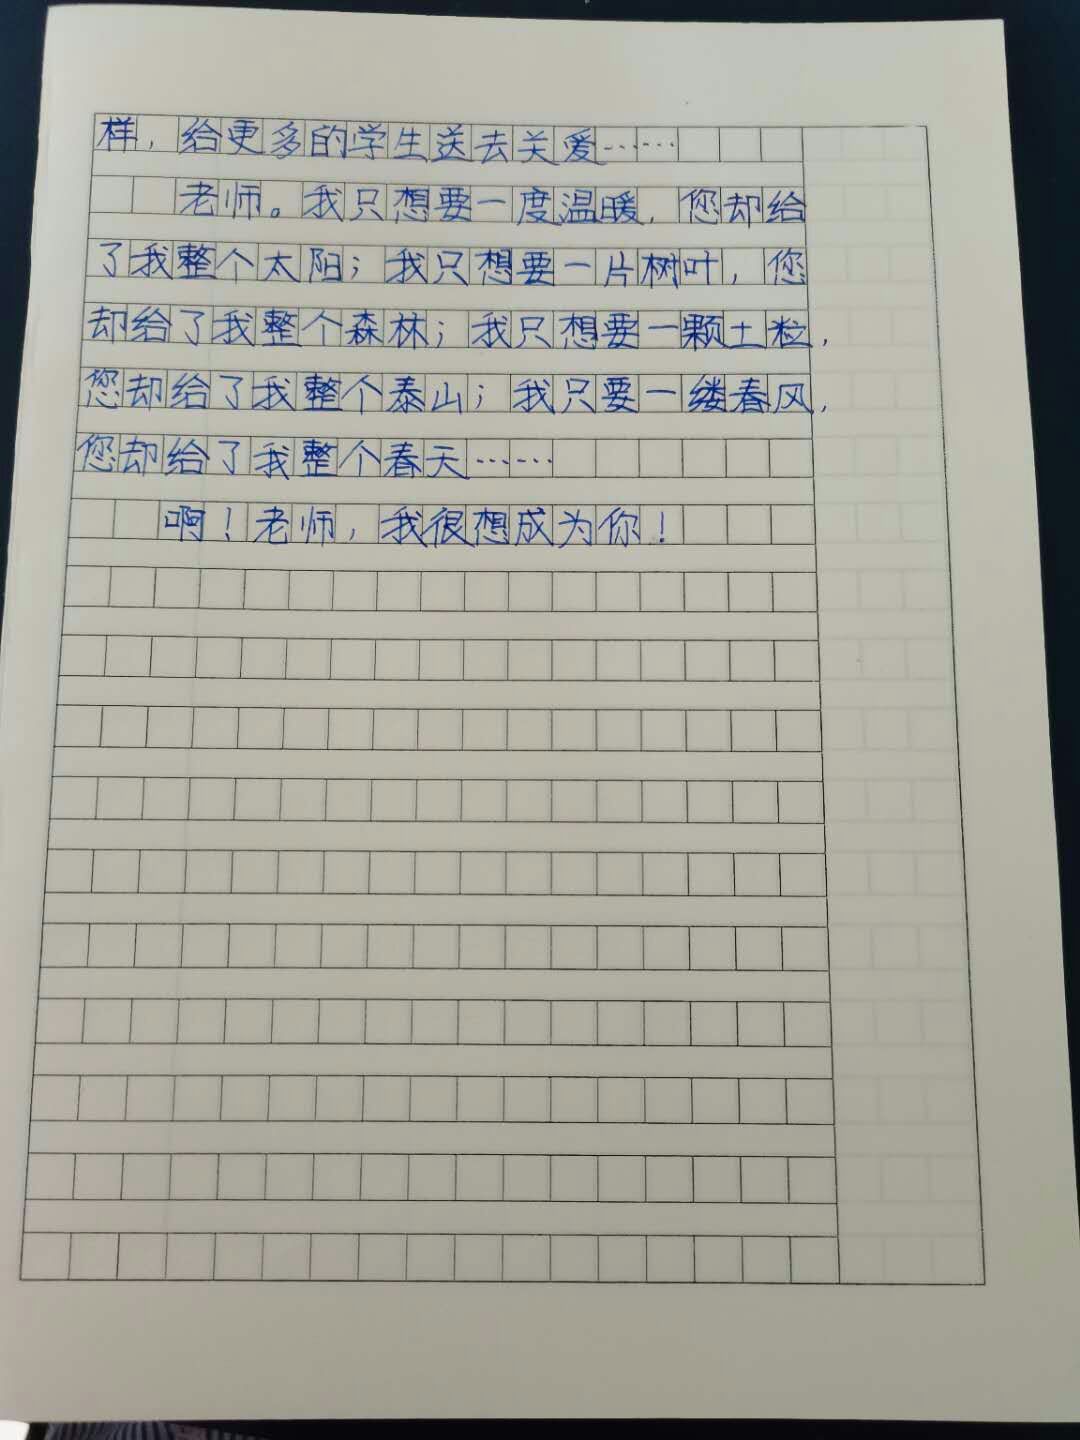 样，给更多的学生送去关爱……
老师。我只想要一度温暖，您却给
了我整个太阳；我只想要一片树叶，您
却给了我整个森林；我只想要一颗土粒，
您却给了我整个泰山；我只要一缕春风，
您却给了我整个春天……
啊！老师，我很想成为你！